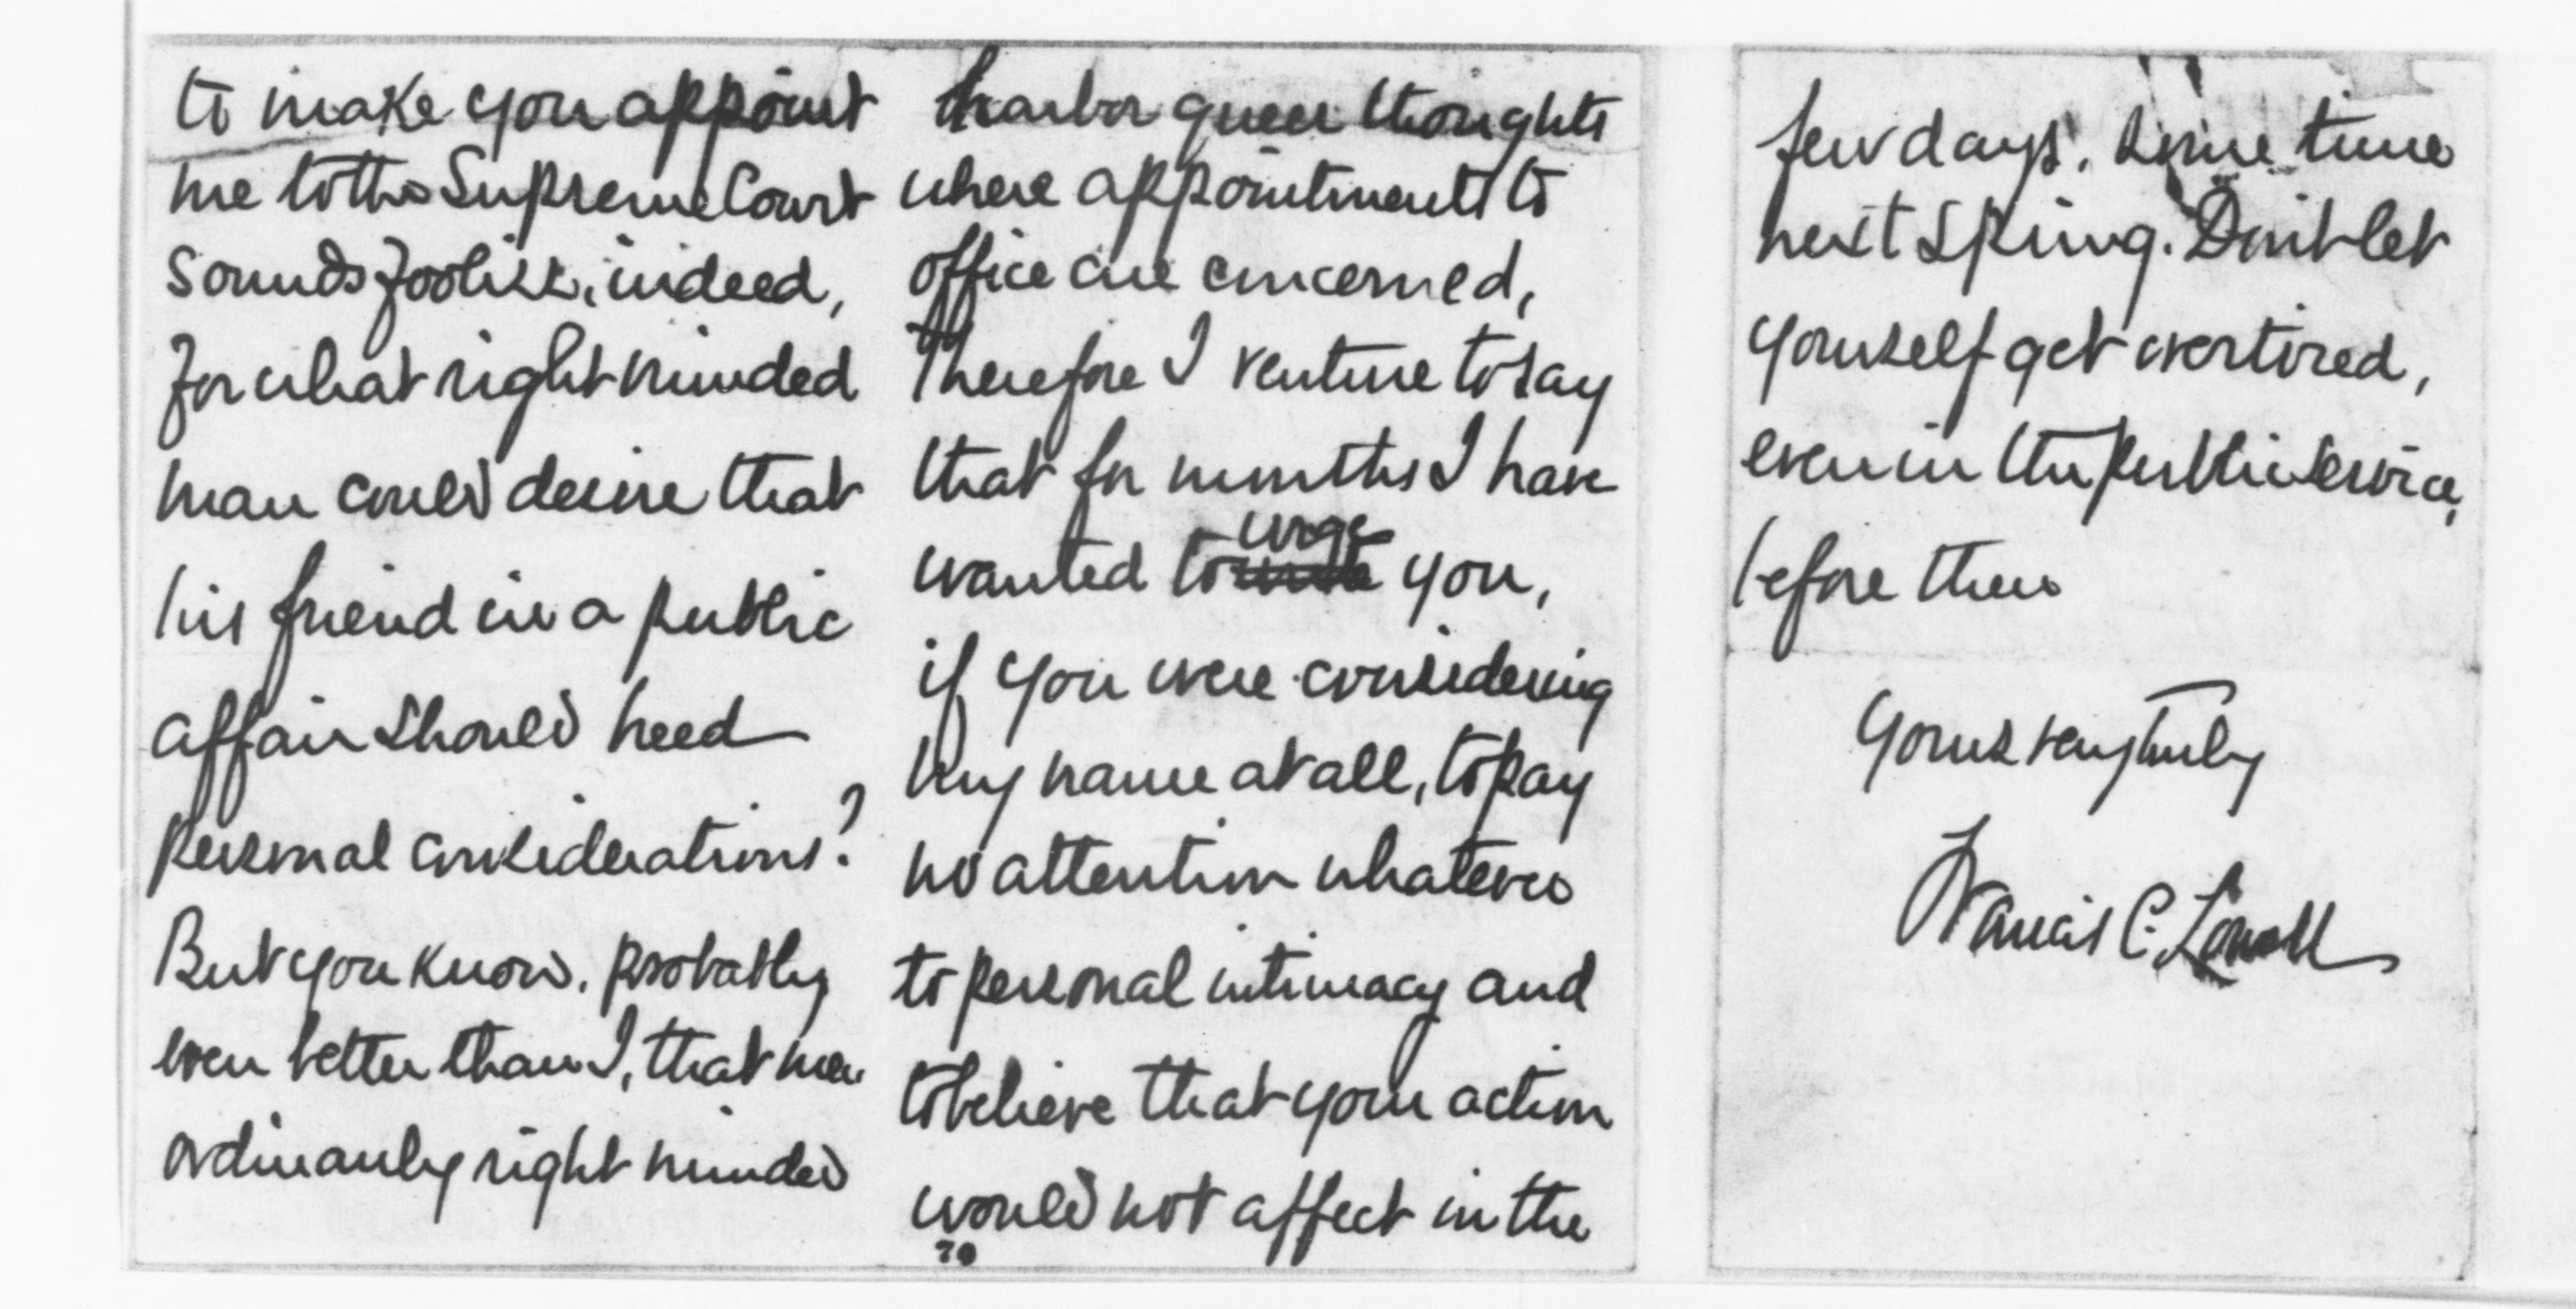 to make you appoint
me to the Supreme Court
sounds foolish, indeed,
for what right minded
man could desire that
his friend in a public
affair should heed
personal considerations?
But you know, probably
even better than I, that men
ordinarily right minded
harbor queer thoughts
where appointments to
office are concerned,
Therefore I venture to say
that for months I have
urge
wanted to you,
if you were considering
my name at all, to pay
no attention whatever
to personal intimacy and
to believe that your action
would not affect in the
70
few days, some time
next Spring. Don't let
yourself get overtired,
even in the public service,
before then
Yours very truly
Francis C. Lowell